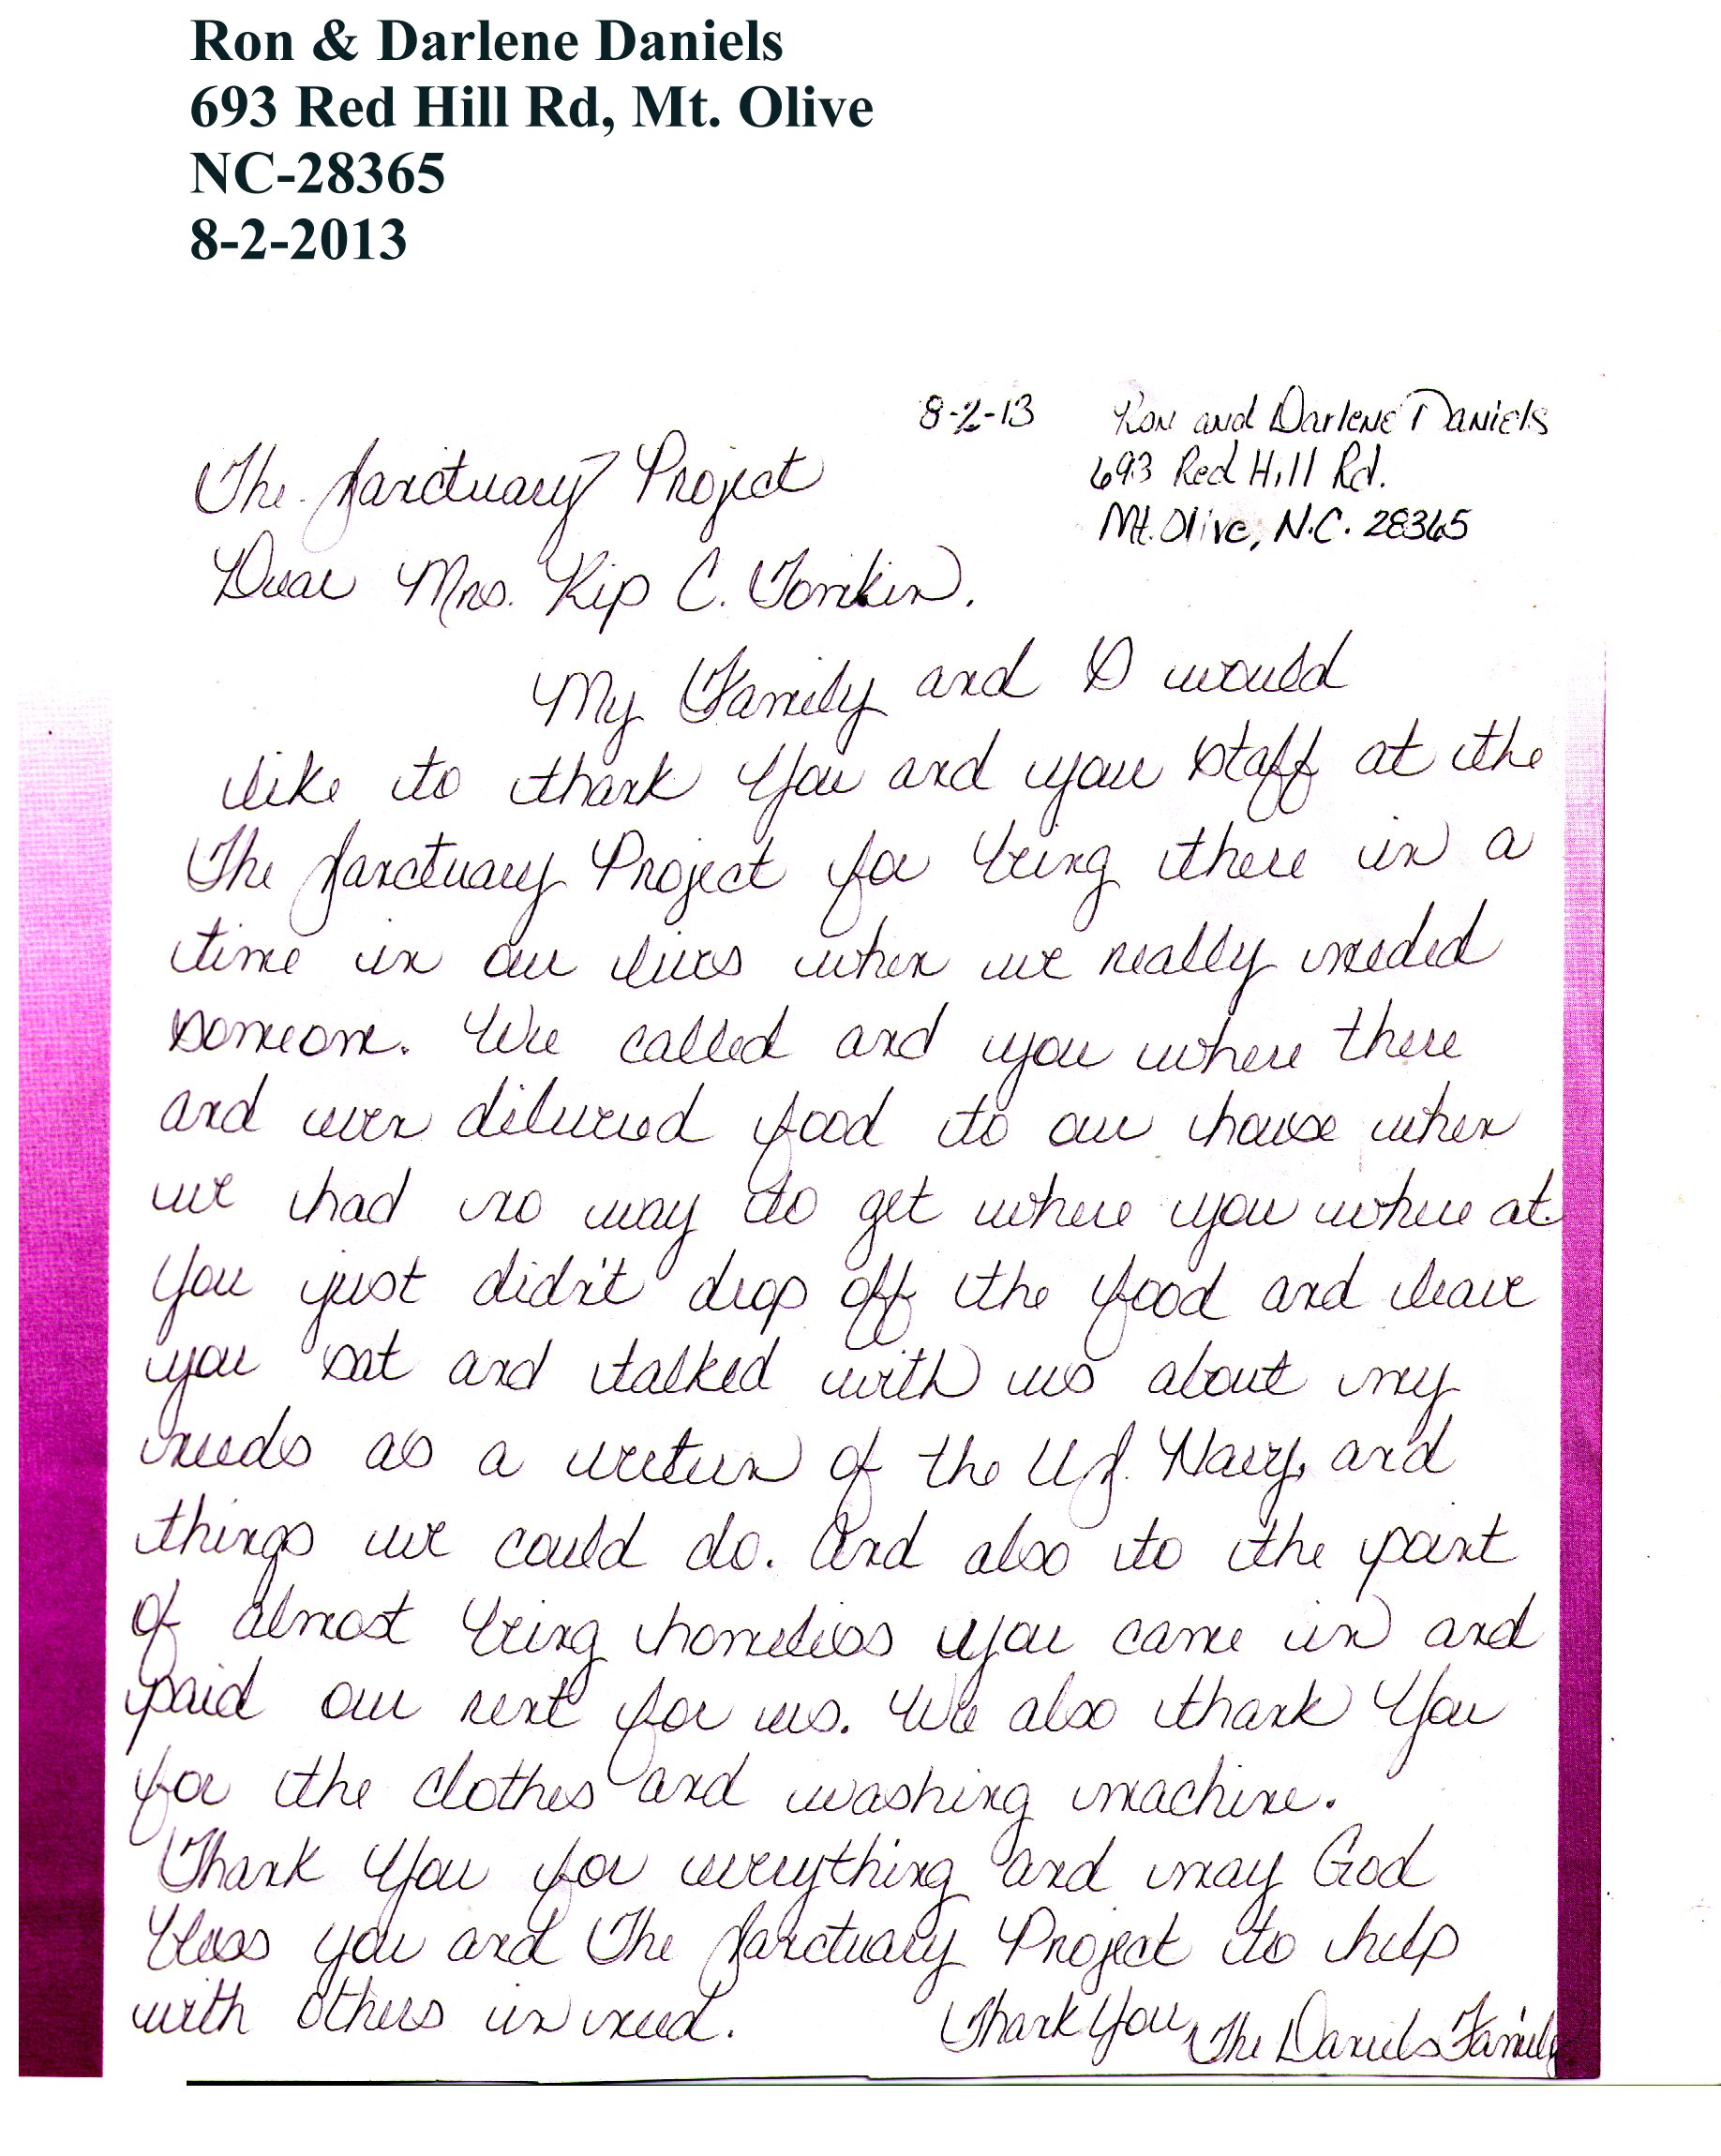 Ron & Darlene Daniels
693 Red Hill Rd, Mt. Olive
NC-28365
8-2-2013
8-2-13 Ron and Darlene Daniels
693 Red Hill Rd.
Mt. Olive, N.C. 28365
The Sanctuary Project
Dear Mrs. Kip C. Tomkin.
My Family and I would
like to thank You and your staff at the
The Sanctuary Project for being there in a
time in our lives when we really needed
someone. We called and you where there
and even dilivered food to our house when
we had no way to get where you where at.
You just didn't drop off the food and leave
you sat and talked with us about my
needs as a veteran of the U.S. Navy, and
things we could do. And also to the point
of almost being homeless you came in and
paid our rent for us. We also thank You
for the clothes and washing machine.
Thank You for everything and may God
bless you and The Sanctuary Project to help
with others in need. Thank You, The Daniels Family